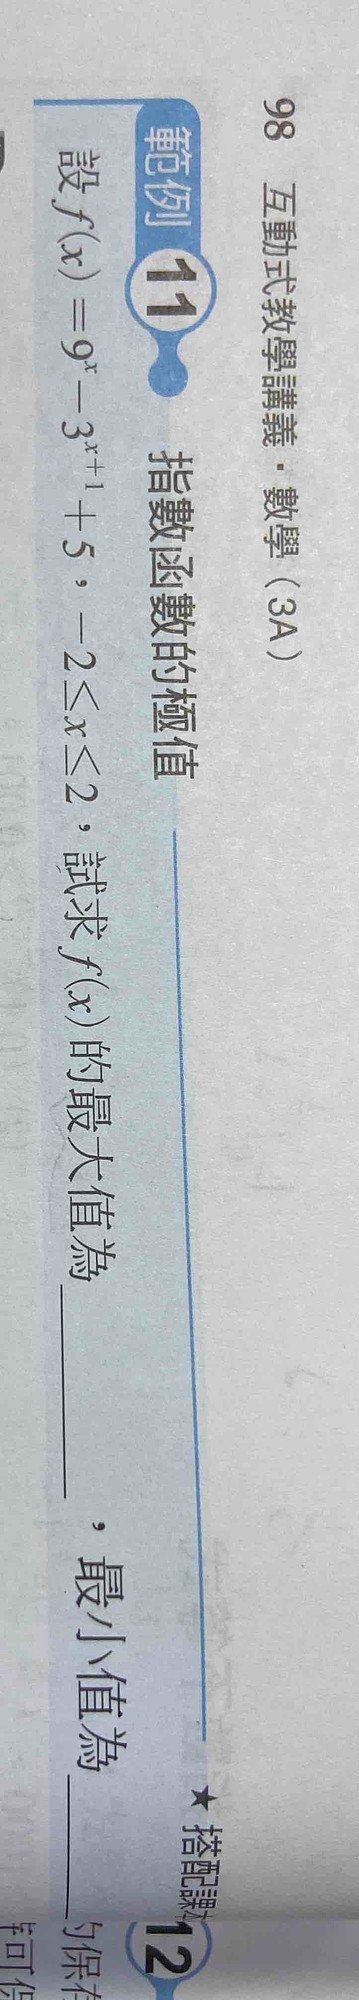 98 互動式教學講義．數學（3A）
範例 11 指數函數的極值
★ 搭配課本
設 f(x)=9ˣ−3ˣ⁺¹+5，−2≤x≤2，試求 f(x) 的最大值為________，最小值為________
12
的保存
可保